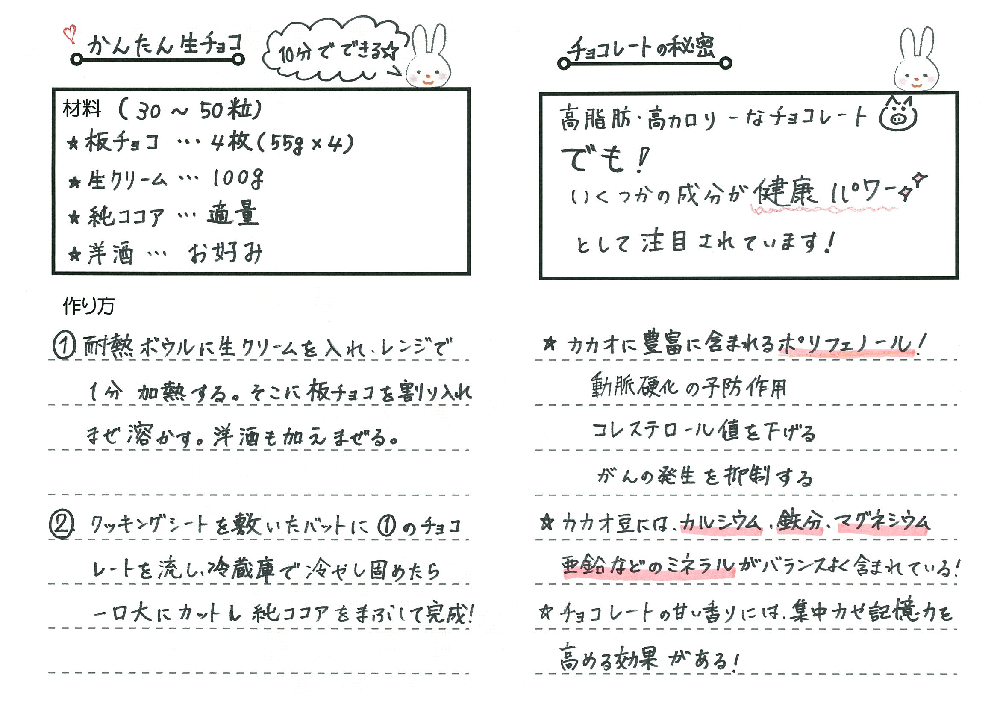 かんたん生チョコ
10分でできる☆
材料 (30～50粒)
★板チョコ … 4枚(55g×4)
★生クリーム … 100g
★純ココア … 適量
★洋酒 … お好み
作り方
①耐熱ボウルに生クリームを入れ、レンジで
1分 加熱する。そこに板チョコを割り入れ
まぜ溶かす。洋酒も加えまぜる。
② クッキングシートを敷いたバットに①のチョコ
レートを流し、冷蔵庫で冷やし固めたら
一口大にカットし 純ココアをまぶして完成!
チョコレートの秘密
高脂肪・高カロリーなチョコレート
でも!
いくつかの成分が健康パワー
として注目されています!
★カカオに豊富に含まれるポリフェノール!
動脈硬化の予防作用
コレステロール値を下げる
がんの発生を抑制する
☆カカオ豆には、カルシウム、鉄分、マグネシウム
亜鉛などのミネラルがバランスよく含まれている!
☆チョコレートの甘い香りには、集中力や記憶力を
高める効果がある!